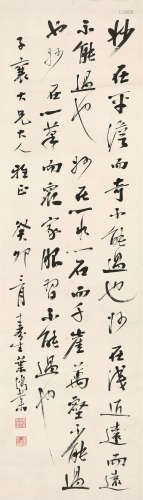 妙在平澹而奇不能過也妙在淺近遠而遠
不能過也妙在一水一石而千崖萬壑不能過
也妙在一筆而眾家服習不能過也
子襄大兄大人雅正
癸卯三月